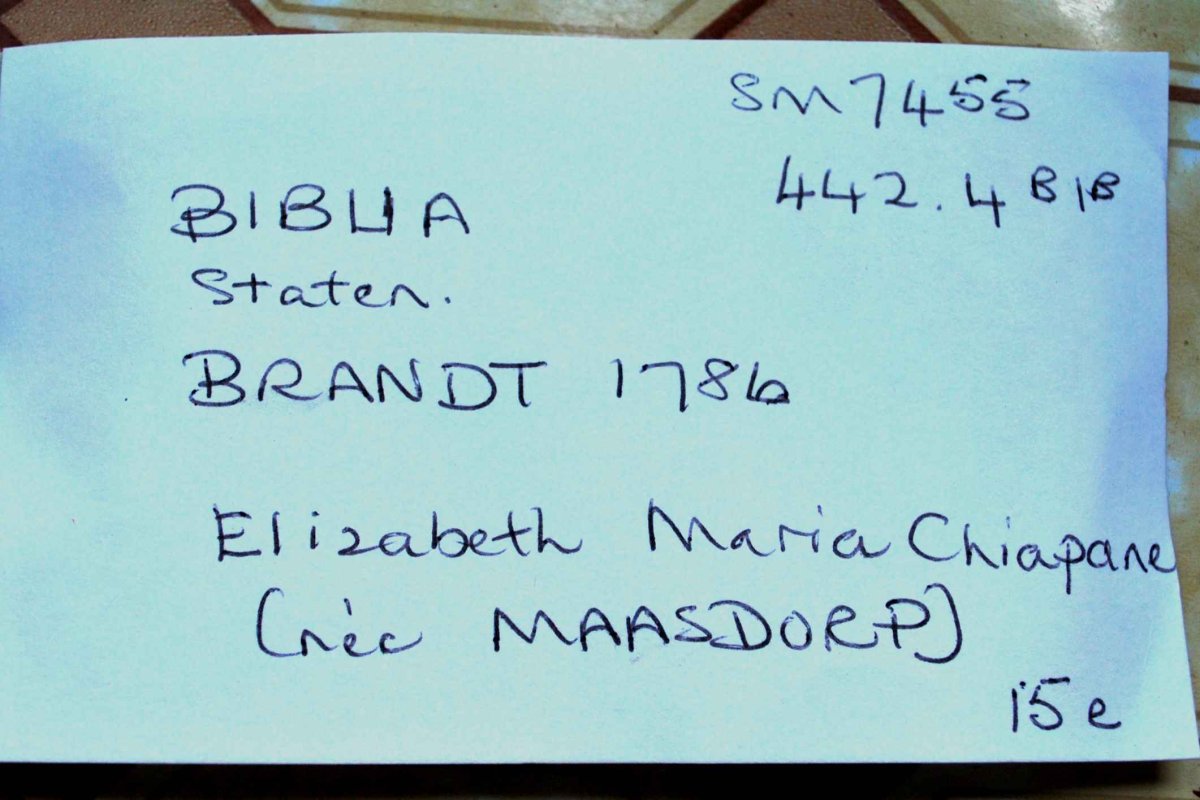 SM 7455
442.4 BIB
BIBLIA
Staten.
BRANDT 1786
Elizabeth Maria Chiapane
(née MAASDORP)
15e